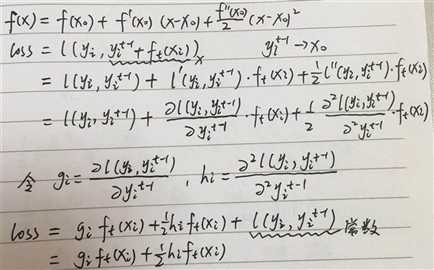 f(x) = f(x₀) + f'(x₀)(x-x₀) + f''(x₀)/2 (x-x₀)²
loss = l(yᵢ, yᵢᵗ⁻¹ + fₜ(xᵢ)) x yᵢᵗ⁻¹ → x₀
= l(yᵢ, yᵢᵗ⁻¹) + l'(yᵢ, yᵢᵗ⁻¹)·fₜ(xᵢ) + ½ l''(yᵢ, yᵢᵗ⁻¹)·fₜ(xᵢ)
= l(yᵢ, yᵢᵗ⁻¹) + ∂l(yᵢ, yᵢᵗ⁻¹)/∂yᵢᵗ⁻¹ · fₜ(xᵢ) + ½ ∂²l(yᵢ, yᵢᵗ⁻¹)/∂²yᵢᵗ⁻¹ · fₜ(xᵢ)
令 gᵢ = ∂l(yᵢ, yᵢᵗ⁻¹)/∂yᵢᵗ⁻¹ , hᵢ = ∂²l(yᵢ, yᵢᵗ⁻¹)/∂²yᵢᵗ⁻¹
loss = gᵢ fₜ(xᵢ) + ½hᵢ fₜ(xᵢ) + l(yᵢ, yᵢᵗ⁻¹) 常数
= gᵢ fₜ(xᵢ) + ½hᵢ fₜ(xᵢ)